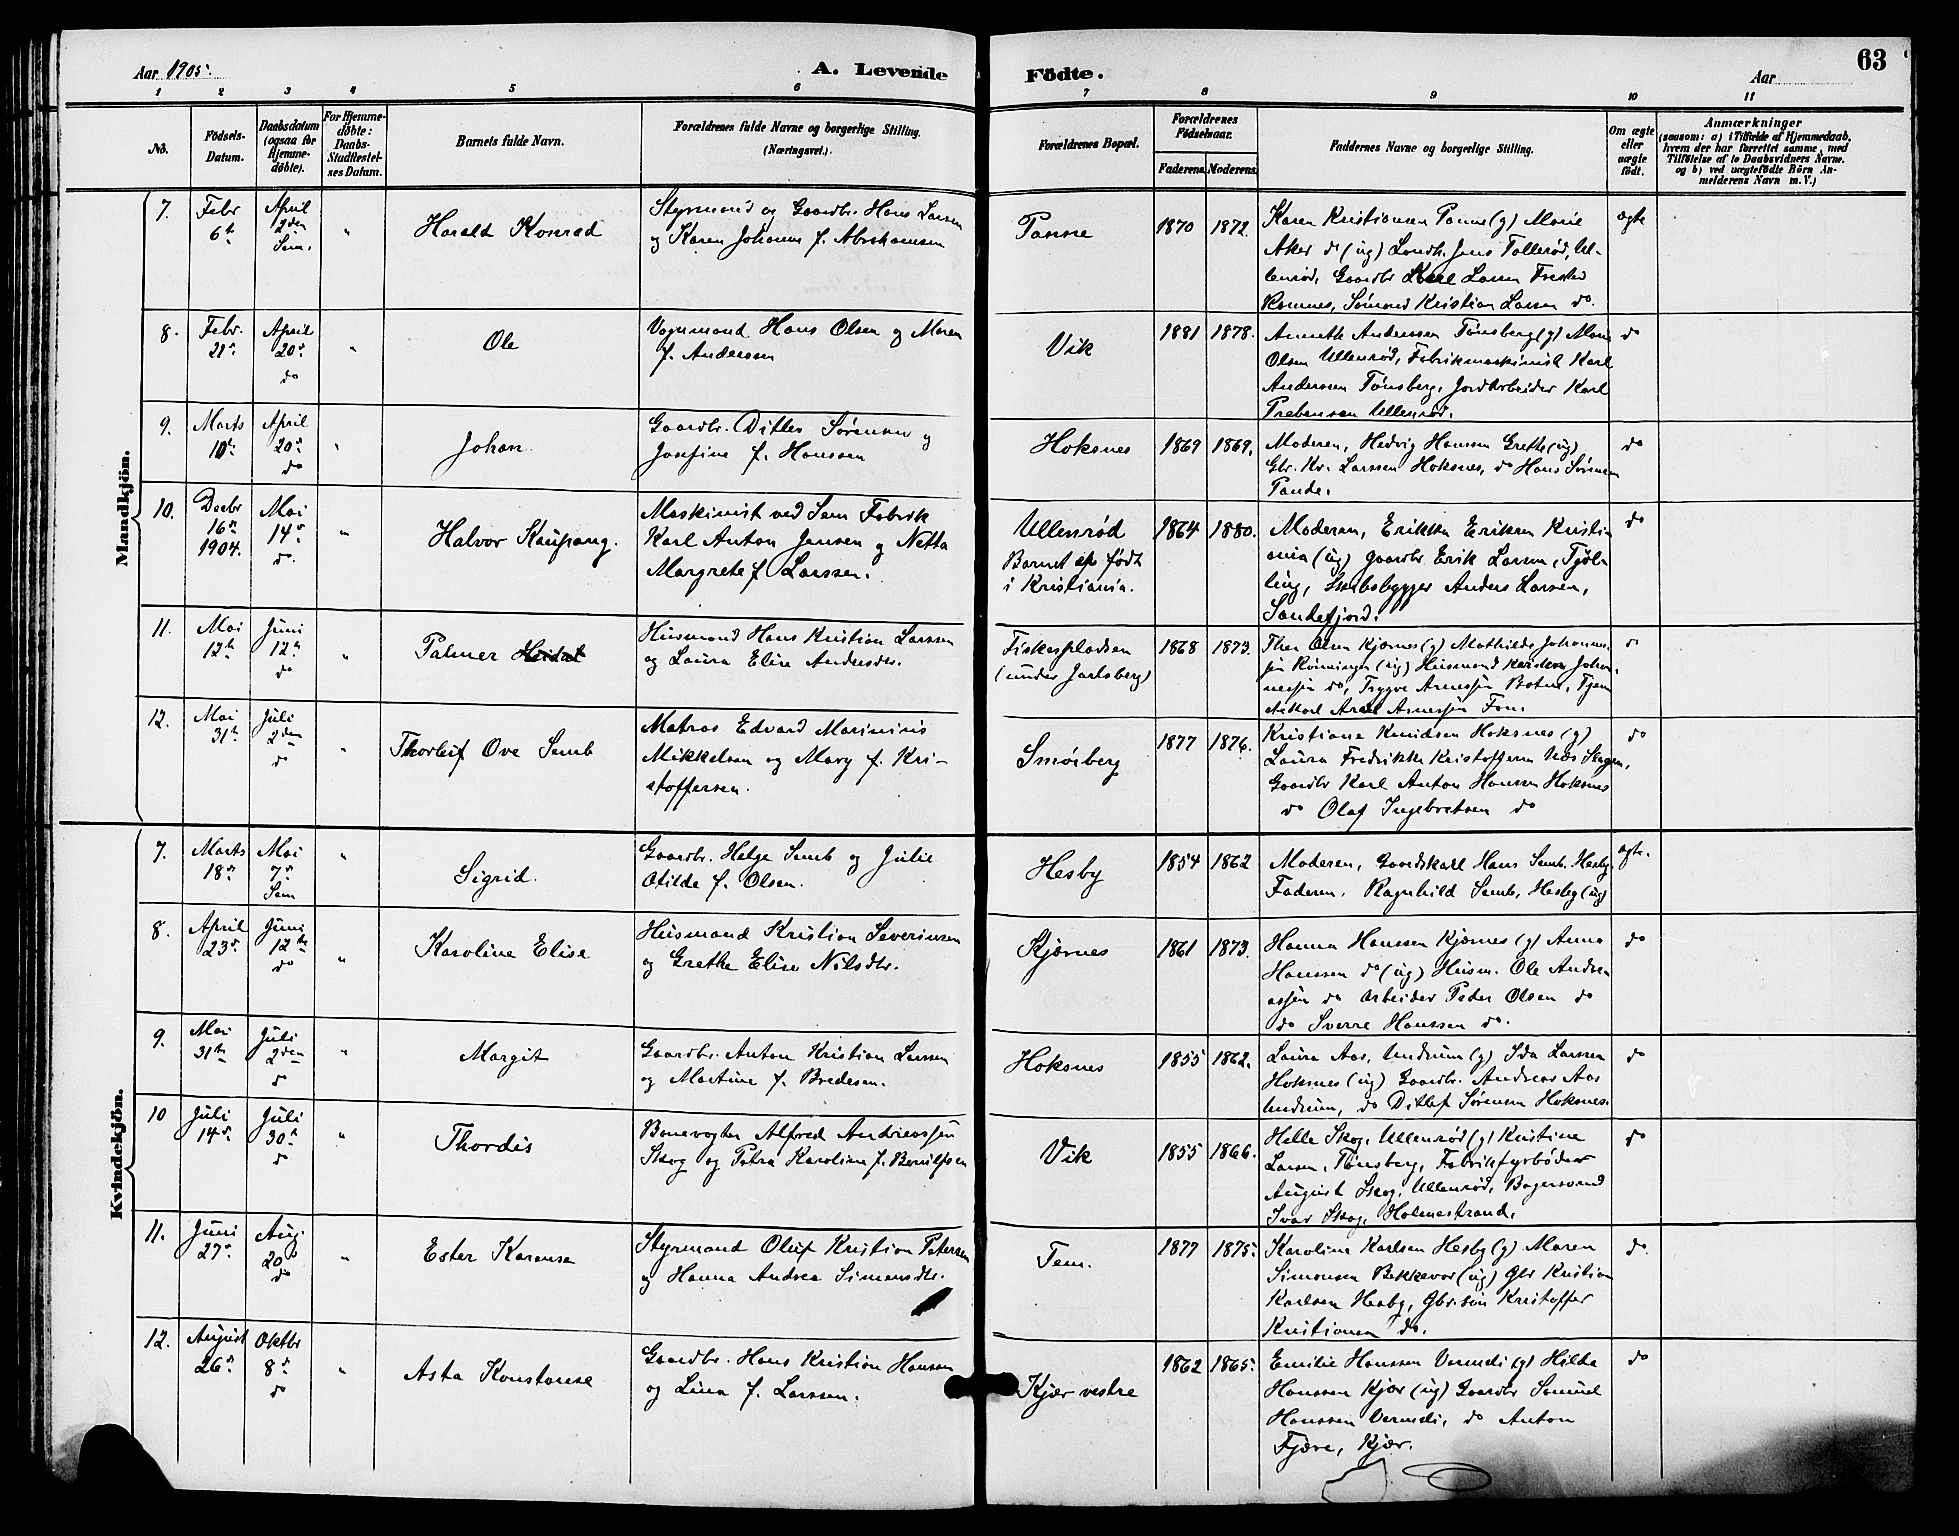 Aar 1905.
A. Levende
Födte.
Aar
63
1 2 3 4 5 6 7 8 9 10 11
No.
Födsels-
Datum.
Daabsdatum
(ogsaa for
Hjemme-
döbte).
For Hjemme-
döbte:
Daabs-
Stadfæstel-
ses Datum.
Barnets fulde Navn.
Forældrenes fulde Navne og borgerlige Stilling.
(Næringsvei.)
Forældrenes Bopæl.
Forældrenes
Födselsaar.
Faderens. Moderens.
Faddernes Navne og borgerlige Stilling.
Om ægte
eller
uægte
födt.
Anmærkninger
(saasom: a) i Tilfælde af Hjemmedaab,
hvem der har forrettet samme, med
Tilföielse af to Daabsvidners Navne.
og b) ved uægtefödte Börn An-
melderens Navn m. V.)
Mandkjön.
7.
Febr
6te
April
2den
Sem.
"
Harald Konrad
Styrmand og Gaardbr. Hans Larsen
og Karen Johanne f. Abrahamsen
Tanne
1870 1872.
Karen Kristiansen Tanne (g) Marie
Aker do (ug) Landh. Jens Tollerød, Ul-
lenrød, Gaardbr Karl Larsen
Ramnes, Sömand Kristian Larsen do.
ægte
8.
Febr.
21de
April
20de
do
"
Ole
Vognmand Hans Olsen og Maren
f. Anderssen
Vik
1881 1878.
Annette Anderssen Tønsberg (g) Marie
Olsen Ullenrød, Fabrikmaskinist Karl
Anderssen Tønsberg, Jordarbeider Karl
Prebensen Ullenrød.
do
9.
Marts
10de
April
20de
do
"
Johan.
Gaardbr. Ditlev Sørensen og
Josefine f. Hanssen
Hoksnes
1869 1869.
Moderen, Hedvig Hanssen Grette (ug),
Gbr. Kr. Larssen Hoksnes, do Hans Sørensen
Tande.
do
10.
Decbr
16de
1904.
Mai
14de
do.
"
Halvor Kaupang.
Maskinist ved Sem Fabrik
Karl Anton Jensen og Netta
Margrete f. Larssen.
Ullenrød
Barnet er født
i Kristiania.
1864 1880.
Moderen, Erikka Eriksen Kristi-
ania (ug) gaardbr Erik Larsen, Tjøl-
ling, Skibsbygger Anders Larsen,
Sandefjord.
do
11.
Mai
12te
Juni
12te
do
"
Palmer
Husmand Hans Kristian Larssen
og Laura Elise Andersdtr.
Fiskerpladsen
(under Jarlsberg)
1868 1873.
Thea Olsen Kjærnes (g) Mathilde Johannes-
sen (ug) Husmand Karsten Johan-
nessen do, Trygve Arnessen Botne, Tjene-
stekarl Arnessen Fon.
do
12.
Mai
31te
Juli
2den
do
"
Thorleif Ove Semb
Matros Edvard Marinius
Mikkelsen og Mary f. Kri-
stoffersen.
Smörberg
1877 1876.
Kristiane Knudsen Hoksnes (g)
Laura Fredrikke Kristoffersen Næs Skagen,
Gaardbr Karl Anton Hansen Hoksnes
do Olaf Ingebretsen do
do
Kvindekjön.
7.
Marts
18de
Mai
7de
Sem
"
Sigrid.
Gaardbr. Helge Semb og Julie
Otilde f. Olsen.
Hesby
1854 1862
Moderen, Gaardskarl Hans Semb, Hesby,
Faderen. Ragnhild Semb, Hesby (ug)
ægte.
8.
April
23de
Juni
12te
do
"
Karoline Elise
Husmand Kristian Severinsen
og Grethe Elise Nilsdtr.
Kjærnes
1861 1873.
Hanna Hanssen Kjærnes (g) Anna
Hanssen do (ug) Husm. Ole Andre-
assen do Arbeider Peder Olsen do
do Sverre Hanssen do.
do
9.
Mai
31te
Juli
2den
do
"
Margit
Gaardbr. Anton Kristian Larssen
og Martine f. Bredesen.
Hoksnes
1855 1862.
Laura Aas, Undrum (g) Ida Larssen
Hoksnes (ug) Gaardbr. Andreas Aas
Undrum, do Ditlef Sørensen Hoksnes.
do
10
Juli
14de
Juli
30te
do
"
Thordis
Banevogter Alfred Andreassen
Skog og Petra Karoline f. Berulfsen
Vik
1855 1866.
Helle Skog, Ullenrød (g) Kristine
Larsen, Tønsberg, Fabrikfyrbøder
August Skog, Ullenrød, Bagersvend
Ivar Skog, Holmestrand.
do
11.
Juni
27de
Aug.
20de
do
"
Ester Karense
Styrmand Oluf Kristian Petersen
og Hanna Andrea Simensdtr.
Tem.
1877 1875.
Karoline Karlsen Hesby (g) Maren
Simonsen Bekkevar (ug) Gbr Kristian
Karlsen Hesby, Gbr.søn Kristoffer
Kristiansen do.
do.
12.
August
26de
Oktbr
8de
do
"
Asta Konstanse
Gaardbr. Hans Kristian Hansen
og Lina f. Larssen.
Kjær vestre
1862 1865.
Emilie Hanssen Vermeli (g) Hilda
Hanssen Kjær (ug) Gaardbr Samuel
Hanssen Vermeli, do Anton
Fjære, Kjær.
do